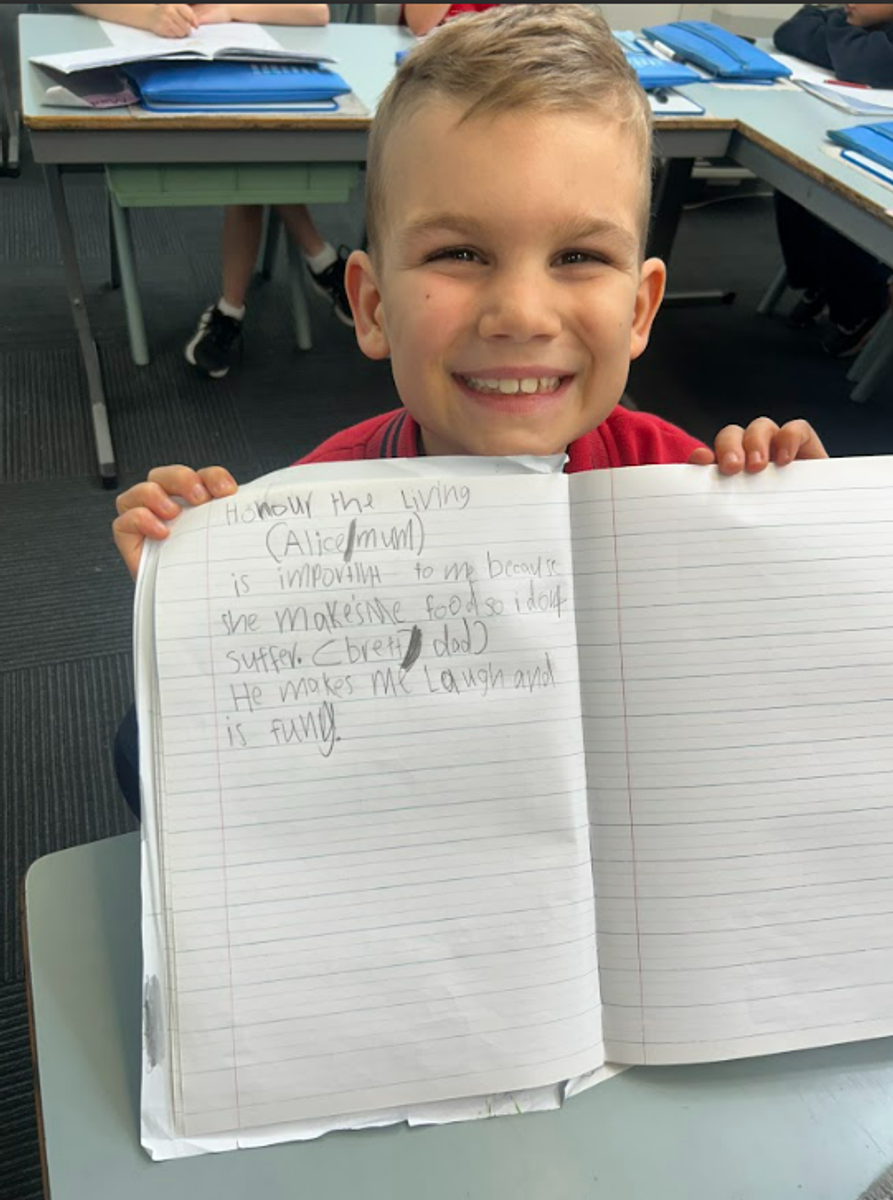 Honour the Living
(Alice/mum)
is importnt to me because
she makesme food so i dont
suffer. (brett/ dad)
He makes me Laugh and
is funy.